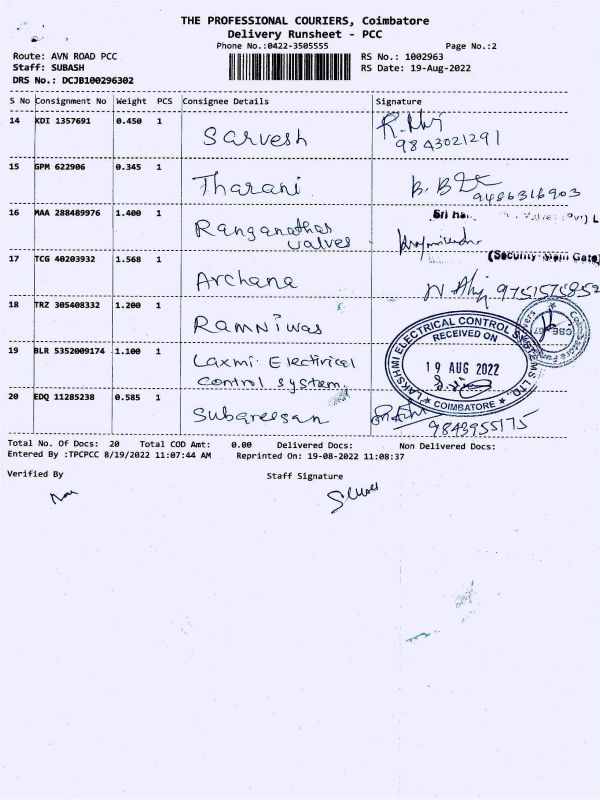 THE PROFESSIONAL COURIERS, Coimbatore
Delivery Runsheet - PCC
Phone No.:0422-3505555 Page No.:2
Route: AVN ROAD PCC RS No.: 1002963
Staff: SUBASH RS Date: 19-Aug-2022
DRS No.: DCJB100296302
S No Consignment No Weight PCS Consignee Details Signature
14 KDI 1357691 0.450 1 Sarvesh
9843021291
15 GPM 622906 0.345 1 Tharani
9486316903
16 MAA 288489976 1.400 1 Ranganathar
valves
Sri Ha
L
17 TCG 40203932 1.568 1 Archana
(Security Main Gate)
9751575852
18 TRZ 305408332 1.200 1 Ramniwas
19 BLR 5352009174 1.100 1 Laxmi Electrical
control system.
LAKSHMI ELECTRICAL CONTROL SYSTEMS LTD.,
RECEIVED ON
19 AUG 2022
★ COIMBATORE ★
20 EDQ 11285238 0.585 1 Subareesan
9843955175
Total No. Of Docs: 20 Total COD Amt: 0.00 Delivered Docs: Non Delivered Docs:
Entered By :TPCPCC 8/19/2022 11:07:44 AM Reprinted On: 19-08-2022 11:08:37
Verified By Staff Signature